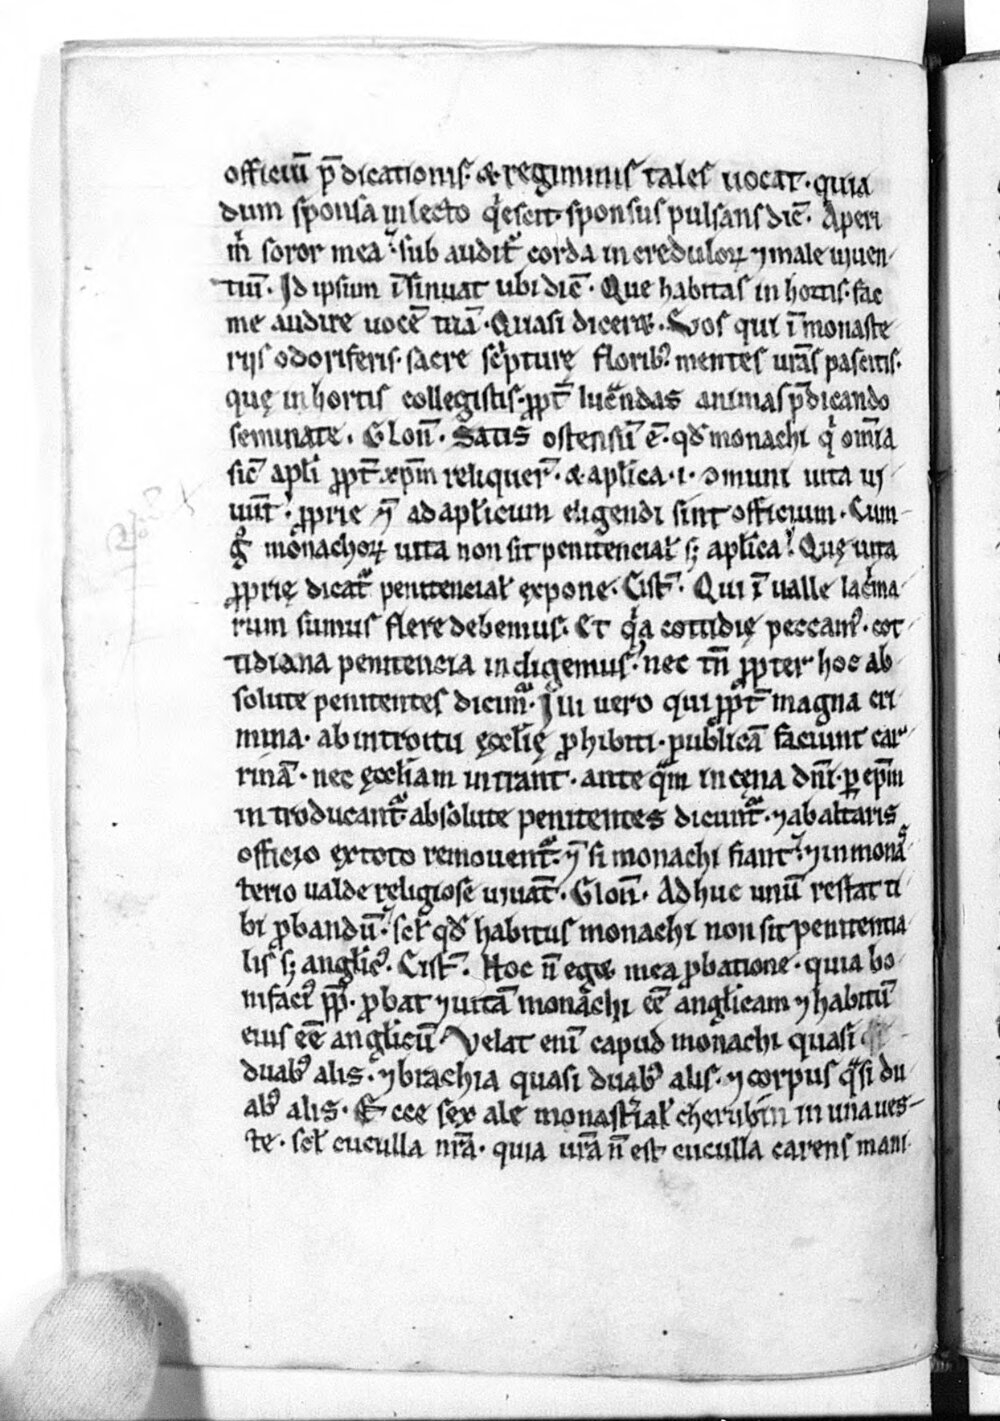 officiū p̄dicationis. & regiminis tales uocat. quia
dum sponsa in lecto q̇escit. sponsus pulsans diē. Aperi
ṁ soror mea. sub audit᷑ corda in creduloꝝ ⁊ male uiuen-
tiū. Id ipsum īsinuat ubi diē. Que habitas in hortis. fac
me audire uocē tuā. Quasi diceret. Vos qui ī monaste
riis odoriferis. sacre sċpturę florib᷒ mentes ur̄as pascitis.
quę in hortis collegistis. ꝓpt̄ luc̄ndas animas p̄dicando
seminate. Clun̄. Satis ostensū ē. qđ monachi q̇ om̄ia
sic̄ apłi ꝓpt̄ xp̄m reliquer̄. & apłica .i. ɔmuni uita ui-
uūt. ꝓprie ⁊ ad apłicum eligendi sint officium. Cum-
g̊ monachoꝝ uita non sit penitenciał sꝫ apłica. Quę uita
ꝓprię dicat᷑ penitenciał expone. Cist̄. Qui ī ualle laċma-
rum sumus flere debemus. Et q̇a cottidię peccam᷒. cot
tidiana penitencia indigemus. nec tn̄ ꝓpter hoc ab-
solute penitentes dicim᷒. Illi uero qui ꝓpt̄ magna cri-
mina. ab introitu ęccłię ꝓhibiti. publicā faciunt car-
rinā. nec ęccłiam intrant. ante q̄m in cęna dn̄i. ꝑ ep̄m
introducant᷑. absolute penitentes dicunt᷑. ⁊ ab altaris
officio ex toto remouent᷑. ⁊̄ si monachi fiant. ⁊ in monas
terio ualde religiose uiuāt. Clun̄. Adhuc unū restat ti-
bi ꝓbandū. scł qđ habitus monachi non sit penitentia-
lis sꝫ anglic᷒. Cist̄. Hoc n̄ eget mea ꝓbatione. quia bo-
nifaci᷒ pp̄. ꝓbat ⁊ uitā monachi eē anglicam ⁊ habitū
eius eē anglicū. Velat enī capud monachi quasi
duab᷒ alis. ⁊ brachia quasi duab᷒ alis. ⁊ corpus q̄si du-
ab᷒ alis. Ecce sex ale monast̄iał cherubin in una ues-
te. scł cuculla nr̄a. quia ur̄a n̄ est cuculla carens mani-